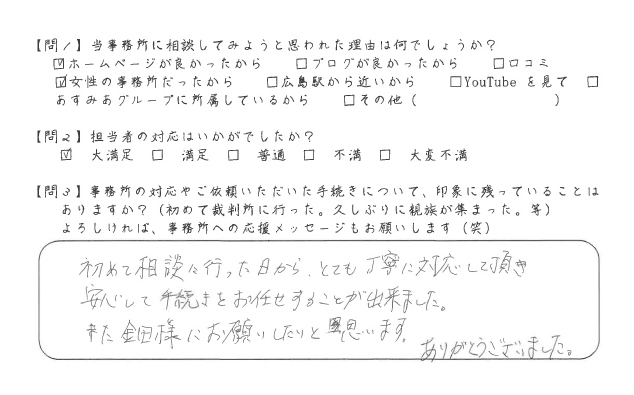 【問1】当事務所に相談してみようと思われた理由は何でしょうか？
☑ホームページが良かったから □ブログが良かったから □口コミ
☑女性の事務所だったから □広島駅から近いから □YouTube を見て □
あすみあグループに所属しているから □その他（ ）
【問2】担当者の対応はいかがでしたか？
☑ 大満足 □ 満足 □ 普通 □ 不満 □ 大変不満
【問3】事務所の対応やご依頼いただいた手続きについて、印象に残っていることは
ありますか？（初めて裁判所に行った。久しぶりに親族が集まった。等）
よろしければ、事務所への応援メッセージもお願いします（笑）
初めて相談に行った日から、とても丁寧に対応して頂き
安心して手続きをお任せすることが出来ました。
また金田様にお願いしたいと思います。
ありがとうございました。